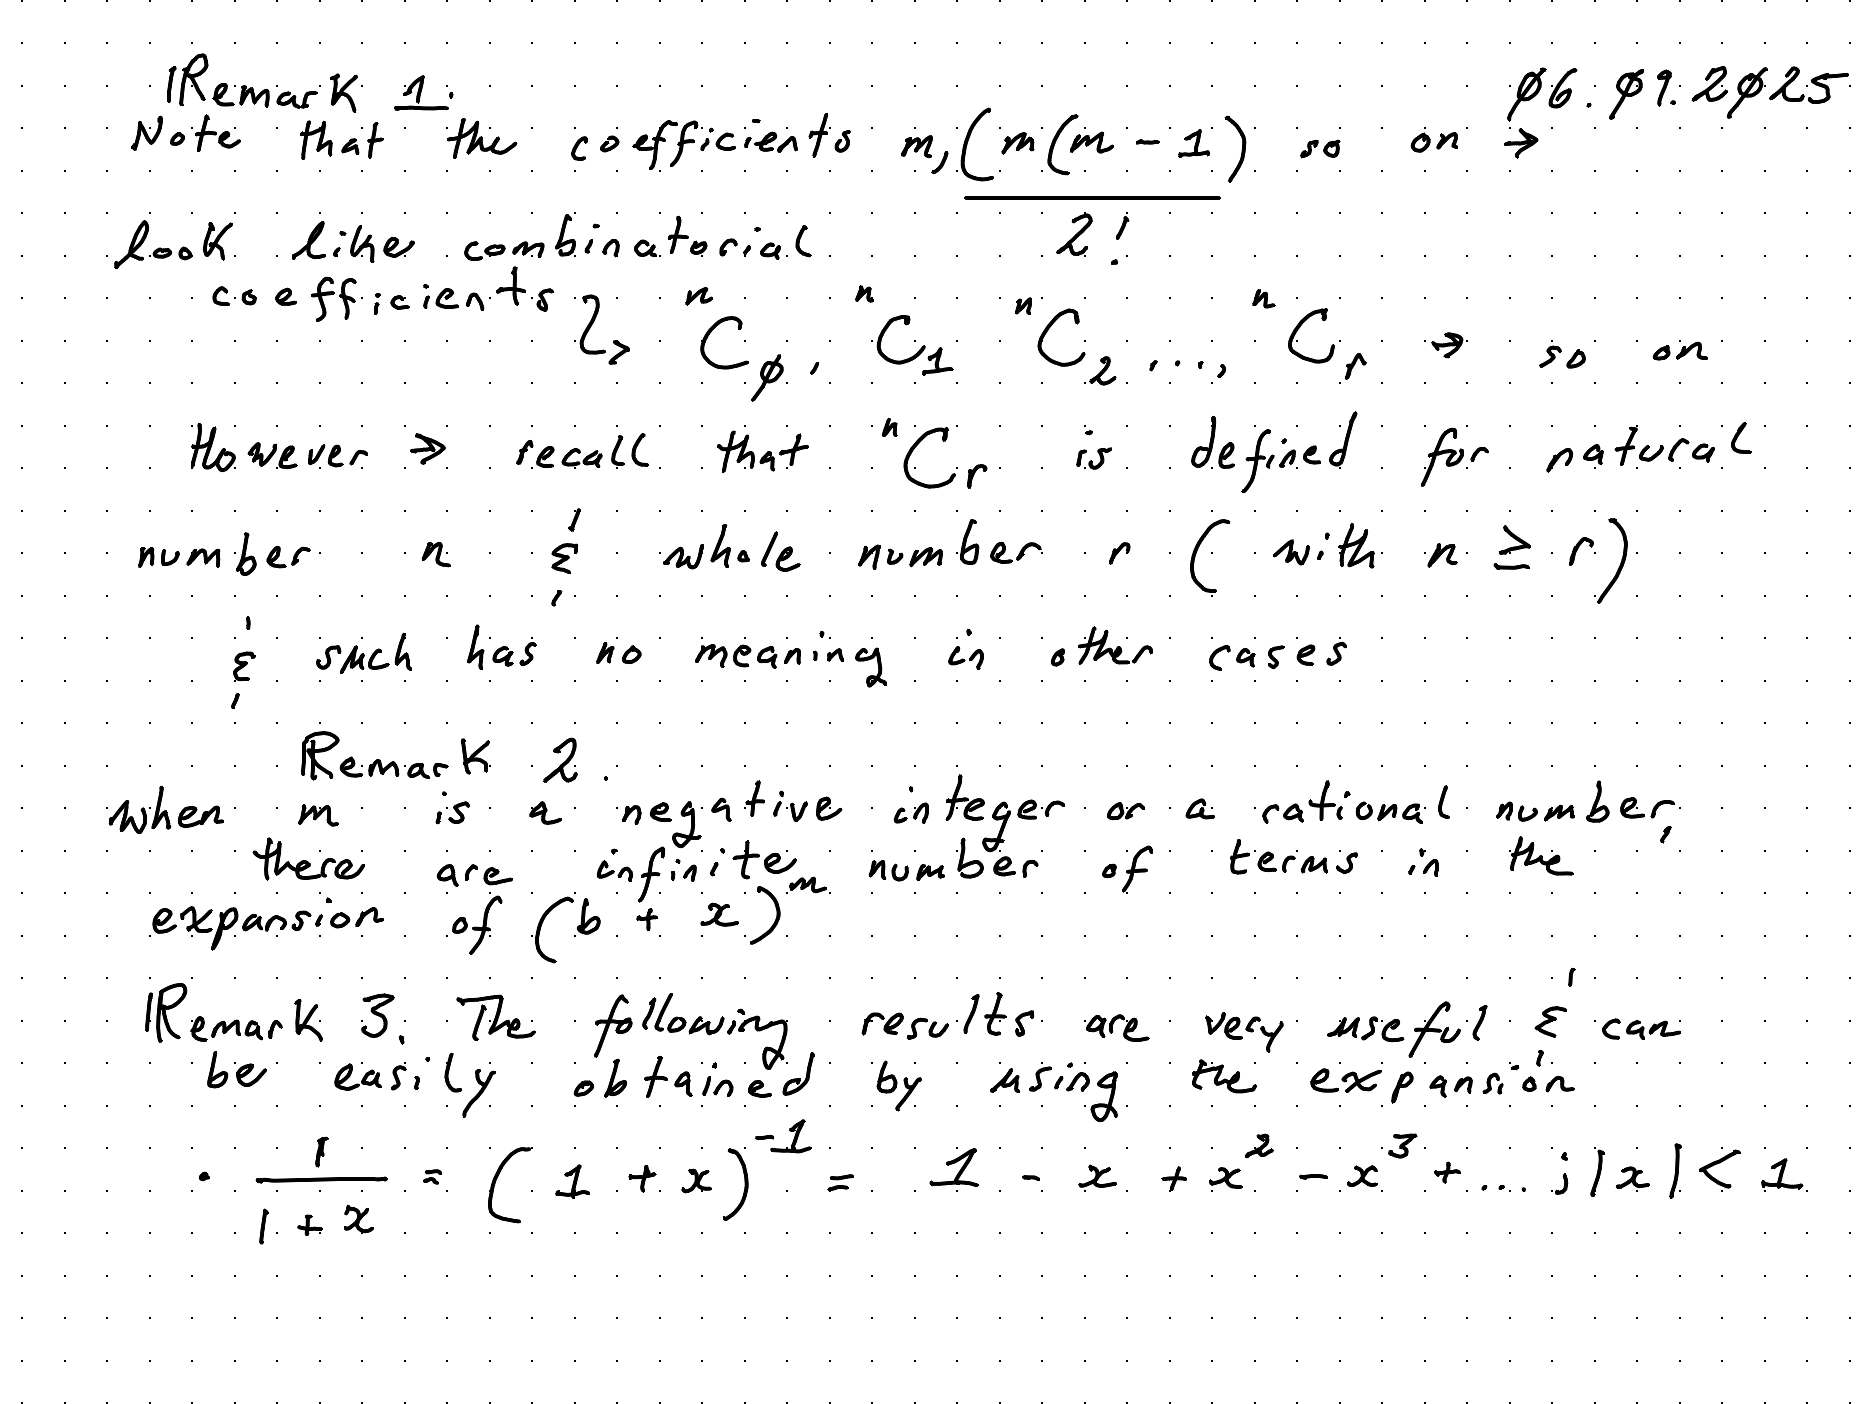 Remark 1.
ø6.ø9.2ø25
Note that the coefficients m, (m(m - 1)) / 2! so on →
look like combinatorial
coefficients ↳ ⁿCø, ⁿC₁ ⁿC₂ ..., ⁿCᵣ → so on
However → recall that ⁿCᵣ is defined for natural
number n & whole number r (with n ≥ r)
& such has no meaning in other cases
Remark 2.
when m is a negative integer or a rational number,
there are infinite number of terms in the
expansion of (b + x)ᵐ
Remark 3. The following results are very useful & can
be easily obtained by using the expansion
• 1/(1 + x) = (1 + x)⁻¹ = 1 - x + x² - x³ + ... ; |x| < 1